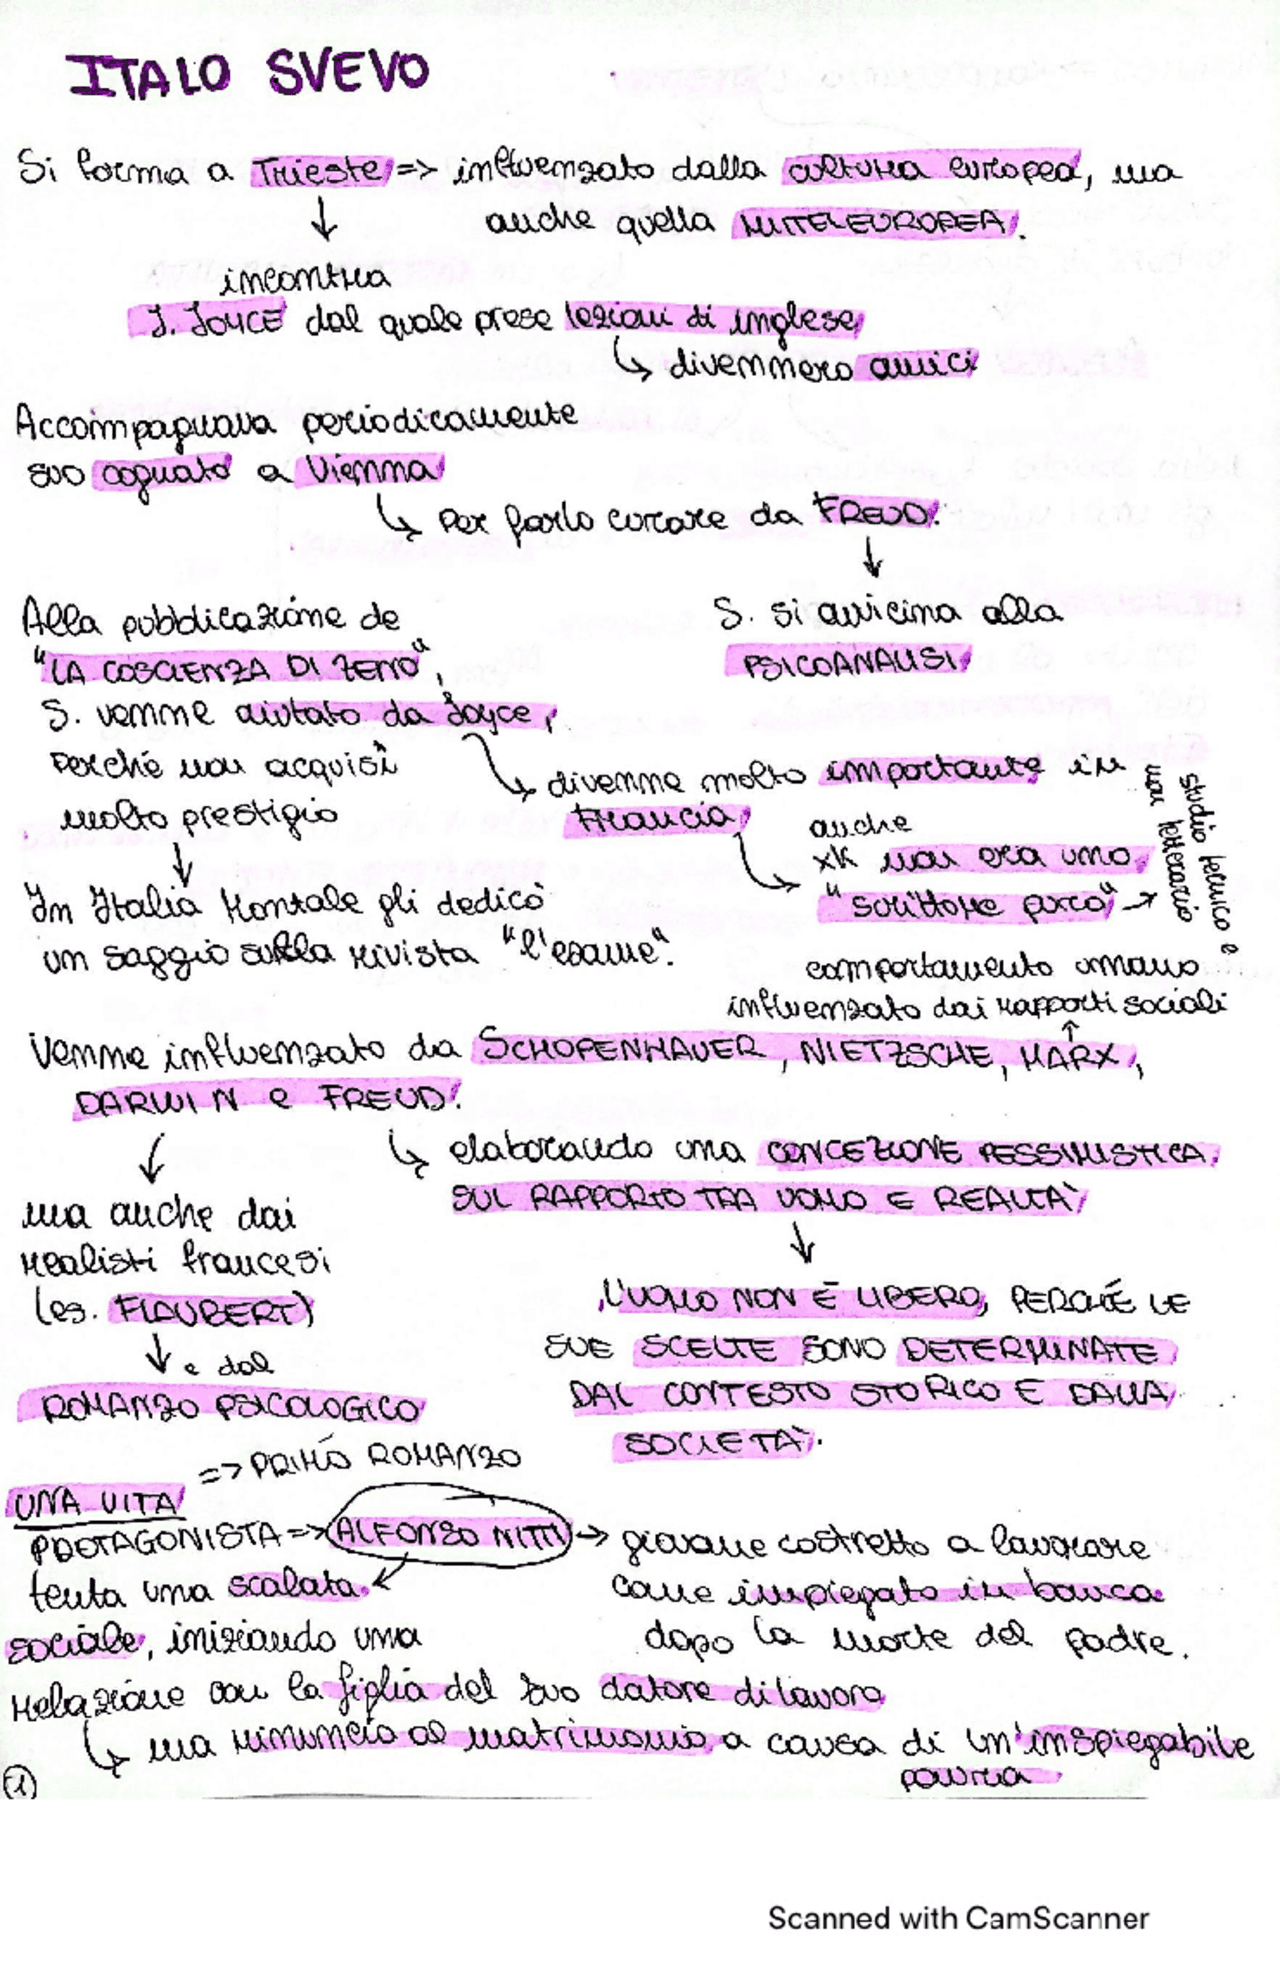 ITALO SVEVO
Si forma a Trieste => influenzato dalla cultura europea, ma
anche quella MITTELEUROPEA.
↓
incontra
J. JOYCE dal quale prese lezioni di inglese
↳ divennero amici
Accompagnava periodicamente
suo cognato a Vienna
↳ per farlo curare da FREUD.
↓
S. si avvicina alla
PSICOANALISI
Alla pubblicazione de
"LA COSCIENZA DI ZENO",
S. venne aiutato da Joyce,
perché non acquisì
molto prestigio
↓
In Italia Montale gli dedicò
un saggio sulla rivista "l'esame".
↳ divenne molto importante in
Francia
↳ anche
xK non era uno
"scrittore puro" →
studio tecnico e
non letterario
comportamento umano
influenzato dai rapporti sociali
↑
Venne influenzato da SCHOPENHAUER, NIETZSCHE, MARX,
DARWIN e FREUD.
↳ elaborando una CONCEZIONE PESSIMISTICA
SUL RAPPORTO TRA UOMO E REALTÀ
↓
L'UOMO NON È LIBERO, PERCHÉ LE
SUE SCELTE SONO DETERMINATE
DAL CONTESTO STORICO E DALLA
SOCIETÀ.
↓
ma anche dai
realisti francesi
(es. FLAUBERT)
↓ e dal
ROMANZO PSICOLOGICO
UNA VITA => PRIMO ROMANZO
PROTAGONISTA => ALFONSO NITTI → giovane costretto a lavorare
come impiegato in banca
dopo la morte del padre.
tenta una scalata
sociale, iniziando una
relazione con la figlia del suo datore di lavoro
↳ ma rinuncia al matrimonio a causa di un'inspiegabile
paura
1
Scanned with CamScanner